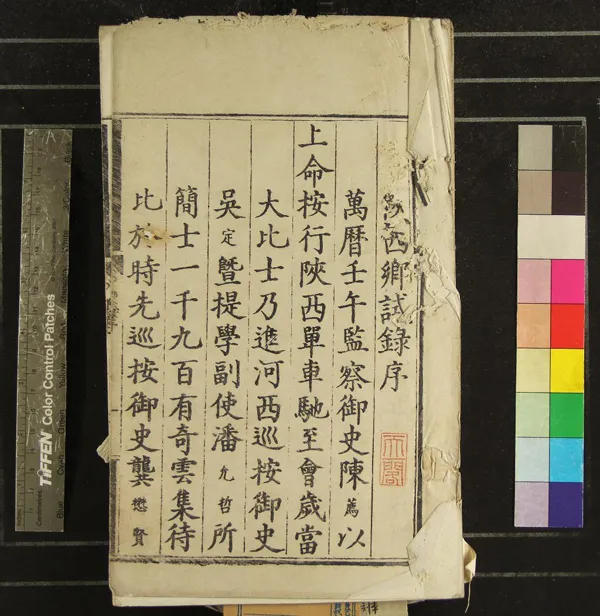 西鄉試錄序
萬曆壬午監察御史陳薦以
上命按行陝西單車馳至會歲當
大比士乃進河西巡按御史
吳定曁提學副使潘允哲所
簡士一千九百有奇雲集待
比於時先巡按御史龔懋賢
天閣
TIFFEN Color Control Patches